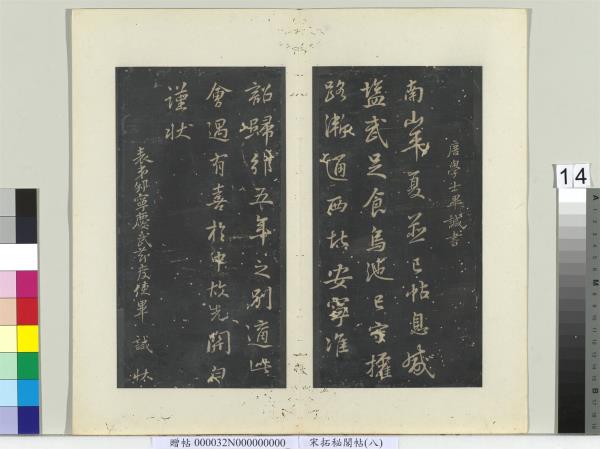 唐學士畢諴書
南山平夏並已帖息威
塩武足食烏池已
路漸通西北安寧准
詔歸約五年之別適此
會遇有喜於中故先開
謹狀
表弟邠寧慶武節度使畢諴狀
14
贈帖 000032N000000000_
宋拓秘閣帖(八)